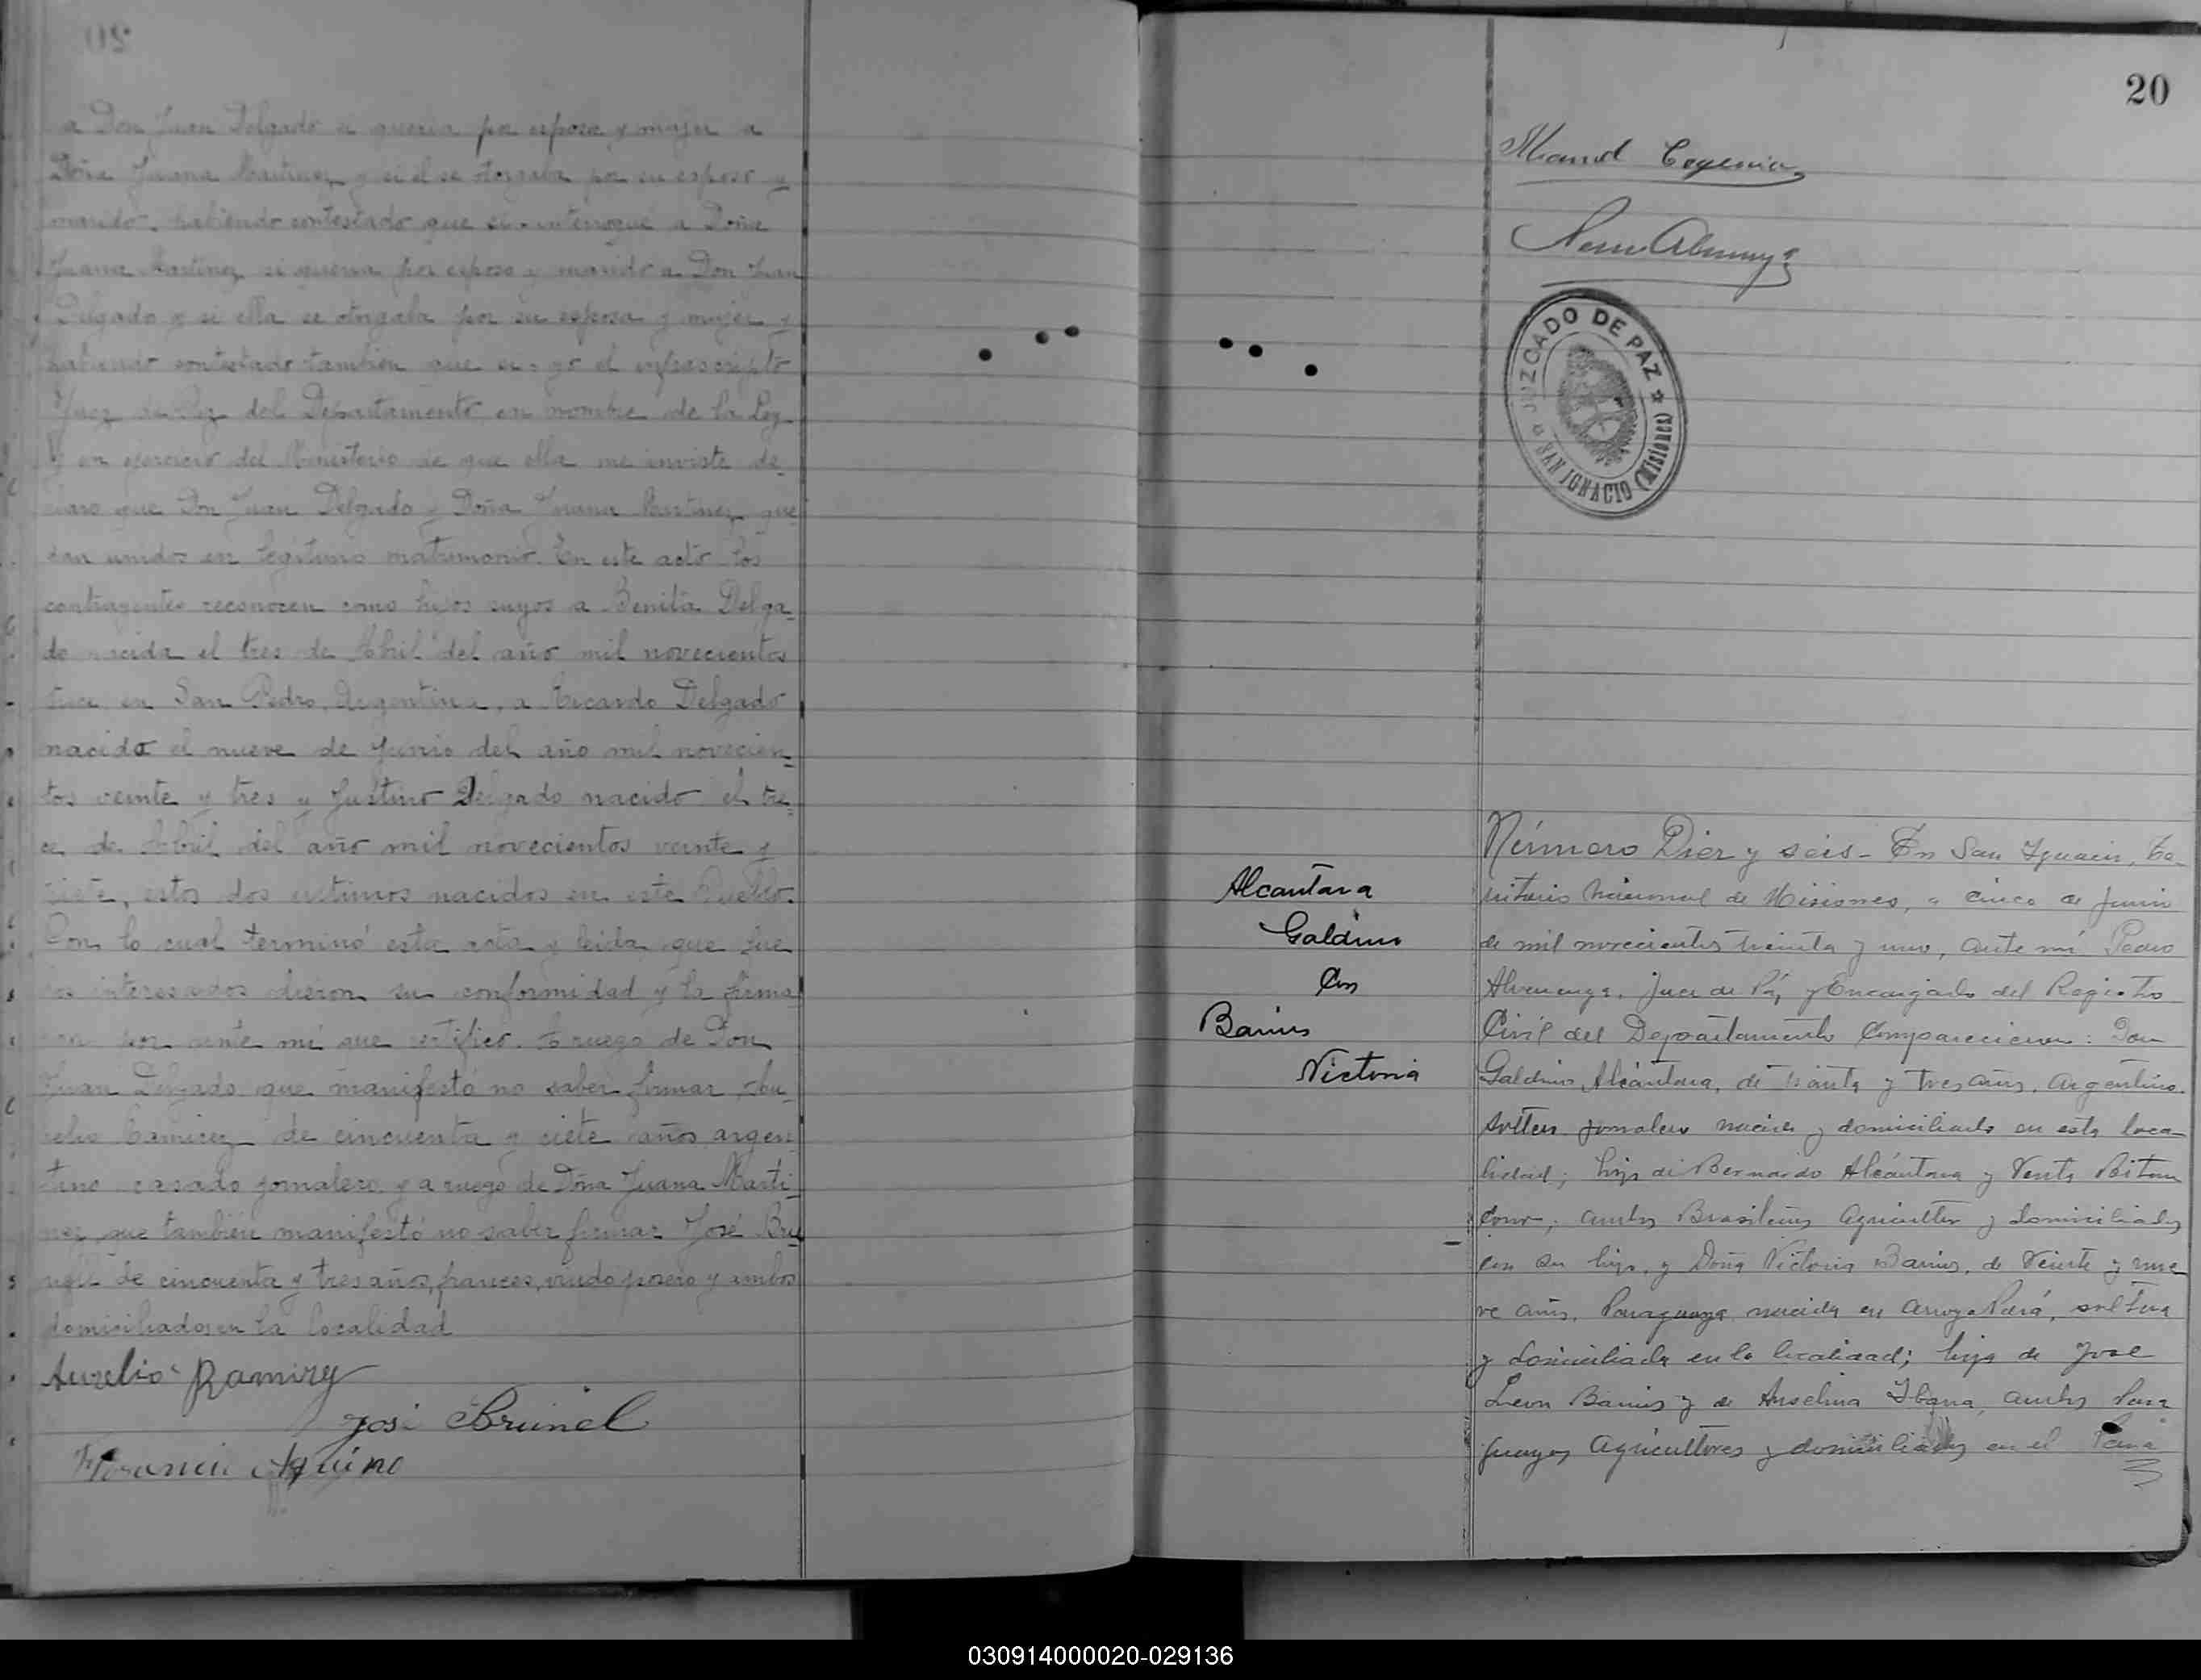 a Don Juan Delgado si queria por esposa y mujer a
Doña Juana Martinez y si el se otorgaba por su esposo y
marido. habiendo contestado que si. interrogue a Doña
Juana Martinez si queria por esposo y marido a Don Juan
Delgado y si ella se otorgaba por su esposa y mujer y
habiendo contestado tambien que si. yo el infrascripto
Juez de Paz del Departamento en nombre de la Ley
y en ejercicio del Ministerio de que ella me inviste de-
claro que Don Juan Delgado y Doña Juana Martinez que
dan unidos en legitimo matrimonio. En este acto los
contrayentes reconocen como hijos suyos a Benita Delga-
do nacida el tres de Abril del año mil novecientos
trece en San Pedro, Argentina, a Ricardo Delgado
nacido el nueve de Junio del año mil novecien-
tos veinte y tres y Justino Delgado nacido el tre-
ce de Abril del año mil novecientos veinte y
siete, estos dos ultimos nacidos en este Pueblo.
Con lo cual terminó esta acta y leida que fue
los interesados dieron su conformidad y la firma
ron por ante mí que certifico. A ruego de Don
Juan Delgado que manifestó no saber firmar Au-
relio Ramirez de cincuenta y siete años argen
tino casado jornalero y a ruego de Doña Juana Marti-
nez que también manifestó no saber firmar José Bru
nel de cincuenta y tres años, frances, viudo y ambos
domiciliados en la localidad
Aurelio Ramirez
José Brunel
Aquino
20
Manuel
JUZGADO DE PAZ
SAN IGNACIO (Misiones)
Alcantara
Galdino
Con
Barrios
Victoria
Número Diez y seis - En San Ignacio, Te-
rritorio Nacional de Misiones, a cinco de Junio
de mil novecientos treinta y uno, ante mí Pedro
Alvarenga, Juez de Paz y Encargado del Registro
Civil del Departamento Comparecieron: Don
Galdino Alcántara, de treinta y tres años, argentino
soltero jornalero nacido y domiciliado en esta loca
lidad; hijo de Bernardo Alcántara y
ambos Brasileños agricultores y domiciliados
con su hijo, y Doña Victoria Barrios, de Veinte y nue
ve años, Paraguaya nacida en Arroyo Pará, soltera
y domiciliada en la localidad; hija de José
Leon Barrios y de Anselma ambos Para
guayos Agricultores y domiciliados en el
030914000020-029136